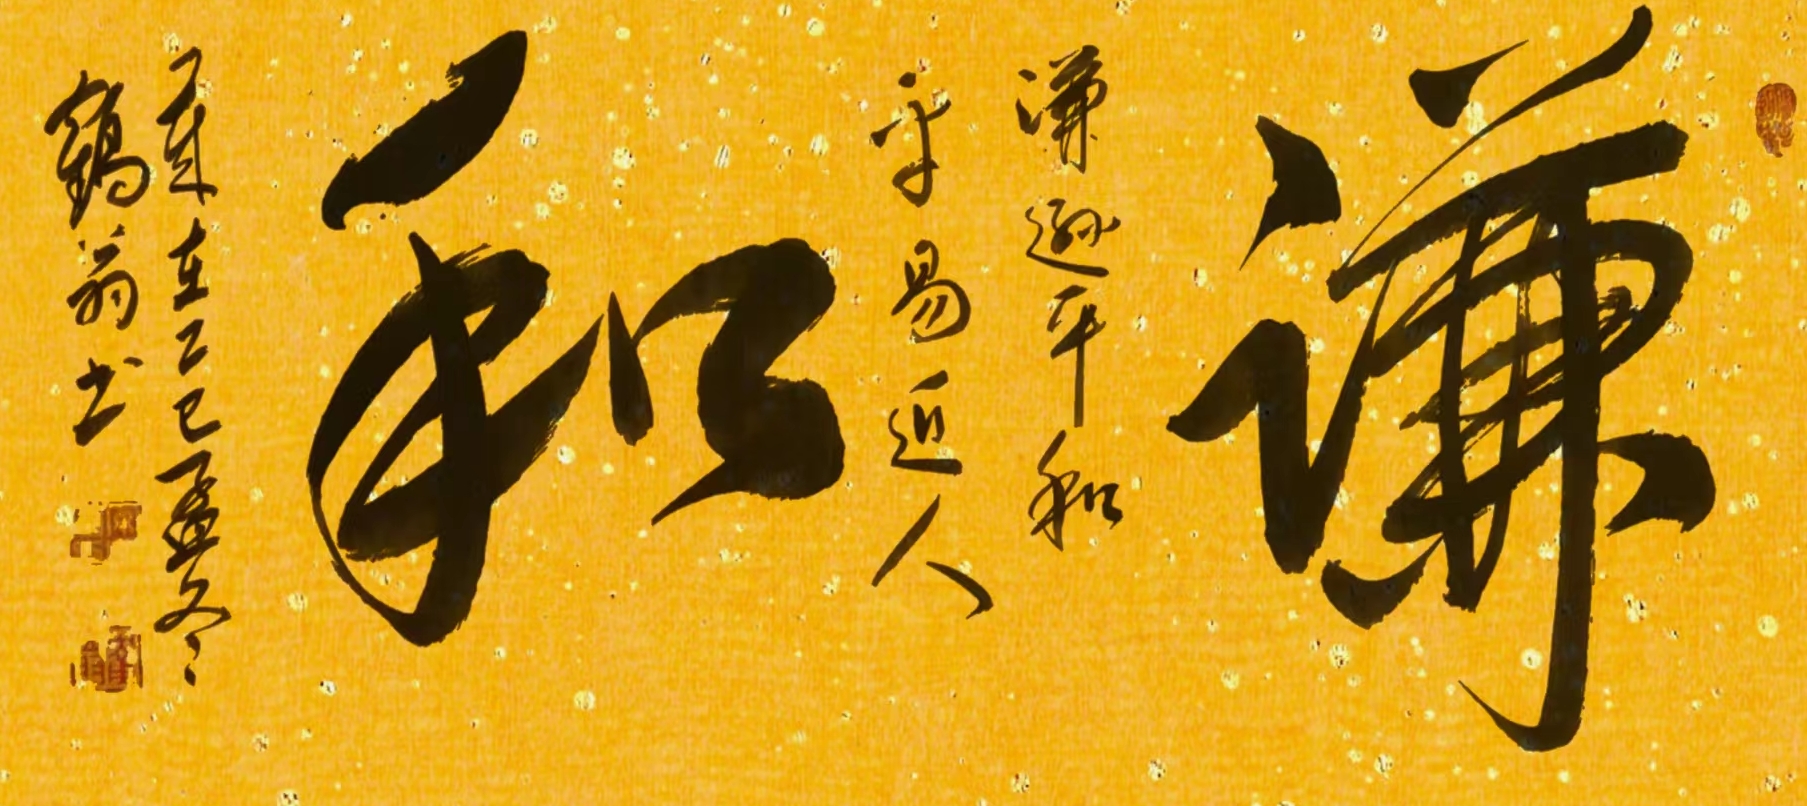 谦
谦逊平和
平易近人
和
岁在乙巳孟冬
鹤翁书